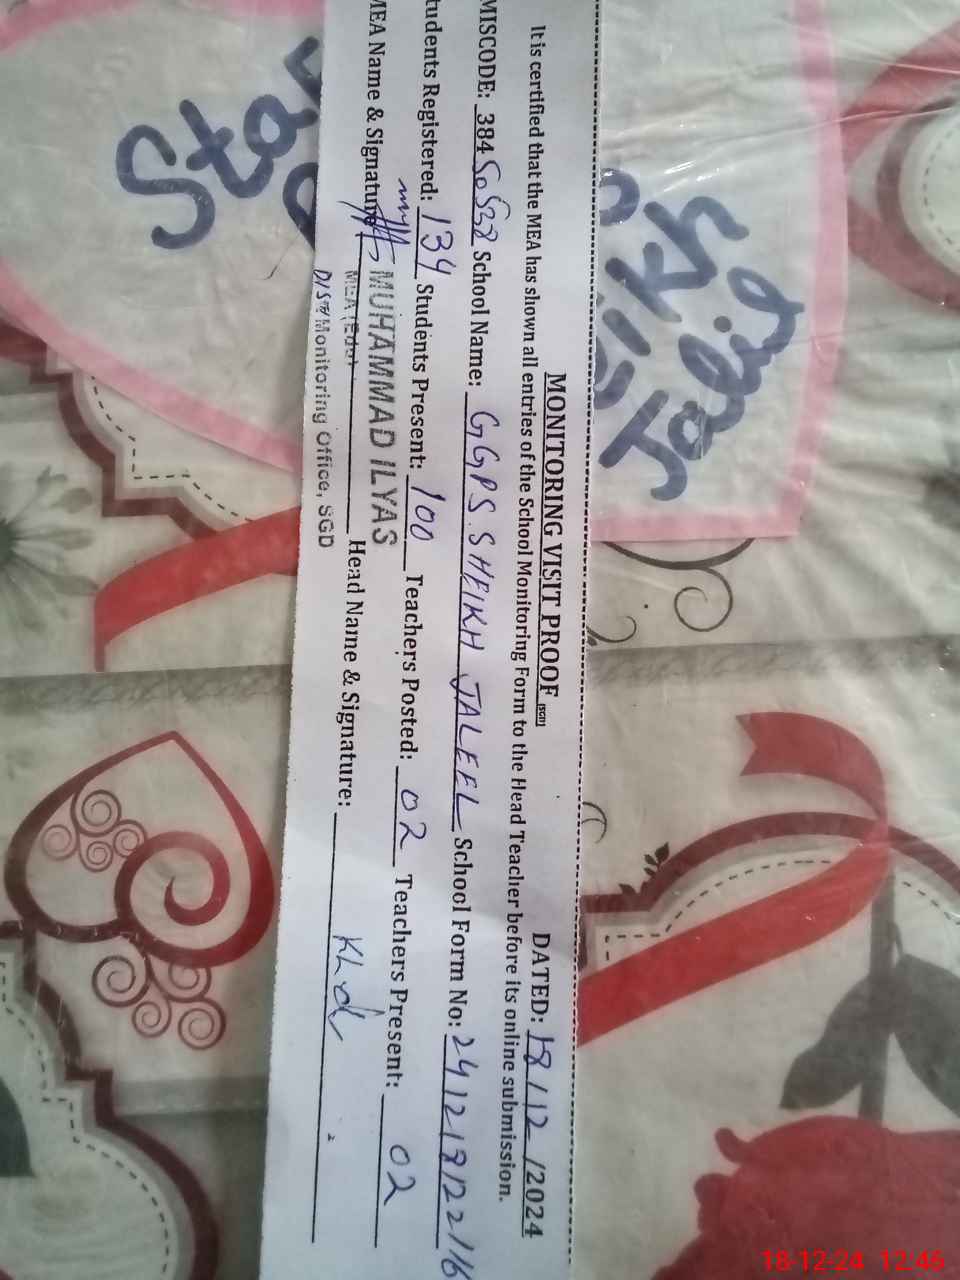 MONITORING VISIT PROOF (SGD) DATED: 18/12/2024
It is certified that the MEA has shown all entries of the School Monitoring Form to the Head Teacher before its online submission.
MISCODE: 384 School Name: GGPS SHEIKH JALEEL School Form No: 24121812216
tudents Registered: 134 Students Present: 100 Teachers Posted: 02 Teachers Present: 02
MEA Name & Signature Head Name & Signature: Khd
MUHAMMAD ILYAS
MEA (Edu)
Distt Monitoring Office, SGD
18-12-24 12:46